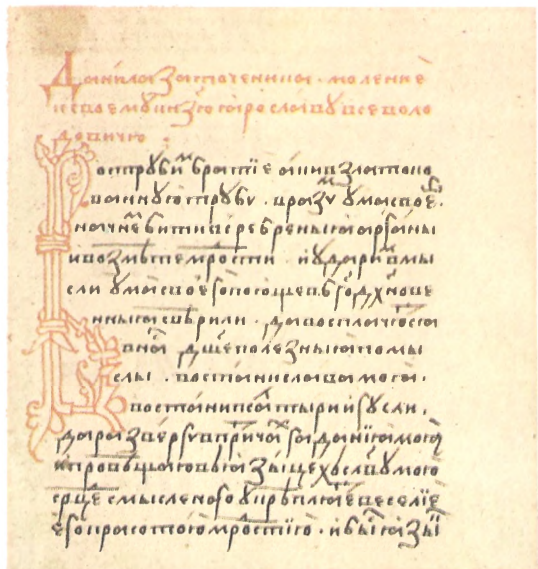 Данила заточеника моленїе
к своемꙋ кнѧзю ꙗрославꙋ всеволо
довичю
Вострꙋбиⷨ братїе аки в златоко
ваннꙋю трꙋбꙋ . в разꙋⷨ ума своеⷢ҇
начнеⷨ бити в сребреныꙗ арганы
и возмѣте мрⷣости и ударим вы
сли ума своего поюще в б҃годх҃нове
нныꙗ свѣрили . да восплачютсѧ
в наⷭ҇ дш҃еполезныꙗ помы
слы . востани слава моꙗ .
востани псалтыри и гꙋсли .
да разверзꙋ в притчаⷯ гаданїꙗ моꙗ
и провѣщаю во ꙗзыцехъ славꙋ мою
срⷣце смысленаго укрѣплѧетсѧ
его красотою и мрⷣостїю . и быⷭ҇ ꙗзы